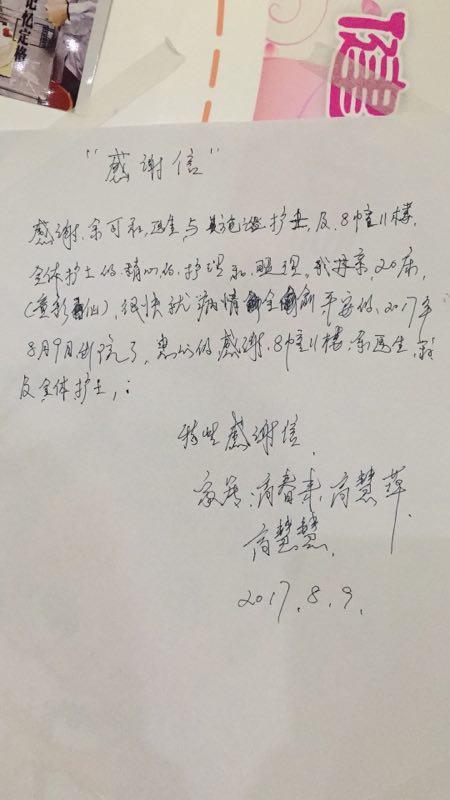 记忆定格
健
"感谢信"
感谢,余可和,医生,与其他 护士及.8幢11楼,
全体护士的精心的,护理和照理,我母亲,20床,
(董彩仙),很快就病情 全 平安的,2017年
8月9月出院了,衷心的感谢.8幢11楼.余医生,
及全体护士,:
特此感谢信.
家属:高春 高慧萍
高慧慧.
2017.8.9.